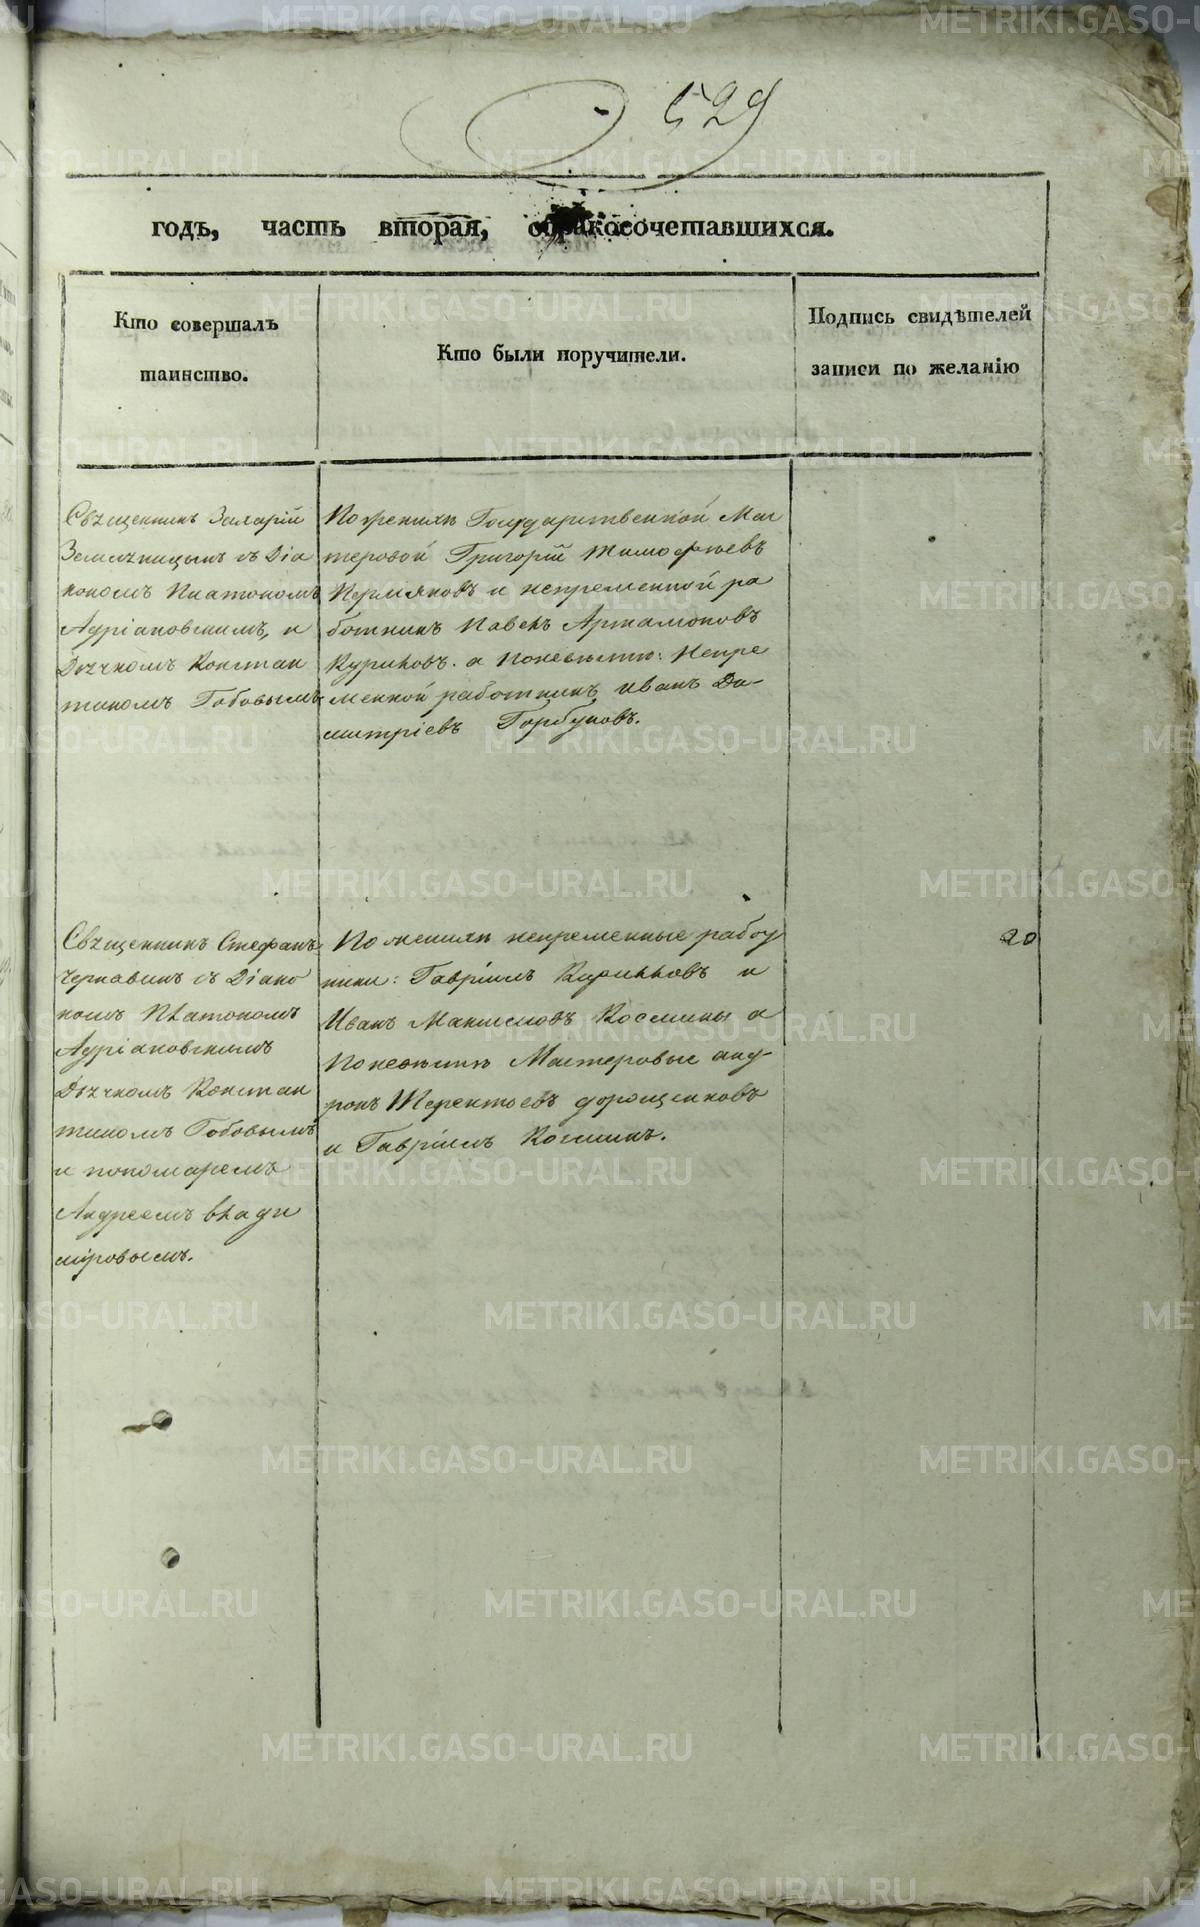 529
годъ, часть вторая, о бракосочетавшихся.
Кто совершалъ
таинство.
Кто были поручители.
Подпись свидѣтелей
записи по желанію
Священникъ
съ Діа
кономъ Платономъ
Адріановскимъ, и
Дьячкомъ Констан
тиномъ Гобовымъ
По женихѣ Государственной Мас
теровой Григорій Тимофѣевъ
Пермяковъ и непременной ра
ботникъ Павелъ Артамоновъ
Куриковъ. а Поневѣстѣ: Непре
менной работникъ Иванъ Ди-
митріевъ Горбуновъ.
Священникъ Стефанъ
Чернавинъ съ Діако
номъ Платономъ
Адріановскимъ
Дьячкомъ Констан
тиномъ Гобовымъ
и пономаремъ
Андреемъ Влади
міровымъ.
По женихѣ непременные работ
ники: Гавріилъ и
Иванъ Максимовъ Космины а
Поневѣстѣ Мастеровые Анд
ронъ Терентьевъ
и Гавріилъ Косминъ.
20
METRIKI.GASO-URAL.RU